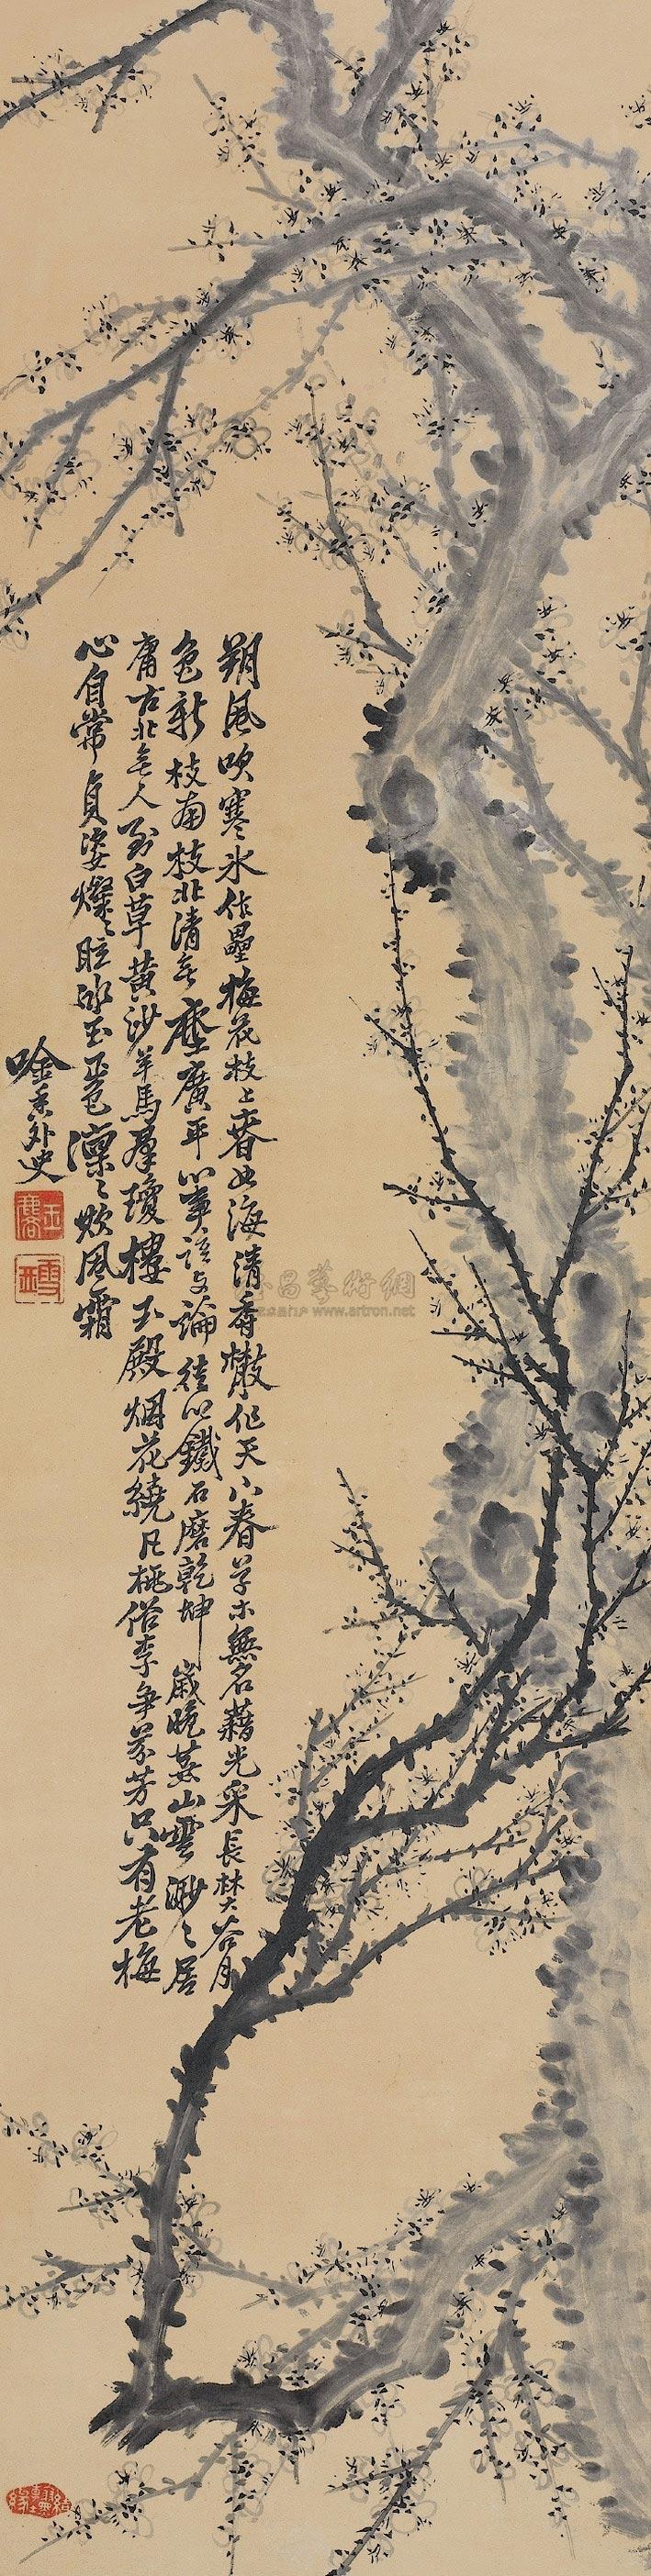 朔風吹寒冰作壘梅花枝上春如海清香散作天下春草木無名藉光采長林大谷月
色新枝南枝北清無塵廣平心事誰與論徒以鐵石磨乾坤歲晚燕山雲渺渺居
庸古北無人到白草黃沙羊馬群瓊樓玉殿烟花繞凡桃俗李爭芬芳只有老梅
心自常貞姿燦燦眩冰玉正色凜凜欺風霜
外史
雅昌藝術網
www.artron.net